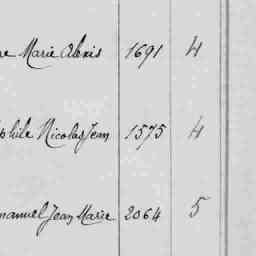 Marie Alexis 1691 4
phile Nicolas Jean 1575 4
manuel Jean Marie 2064 5